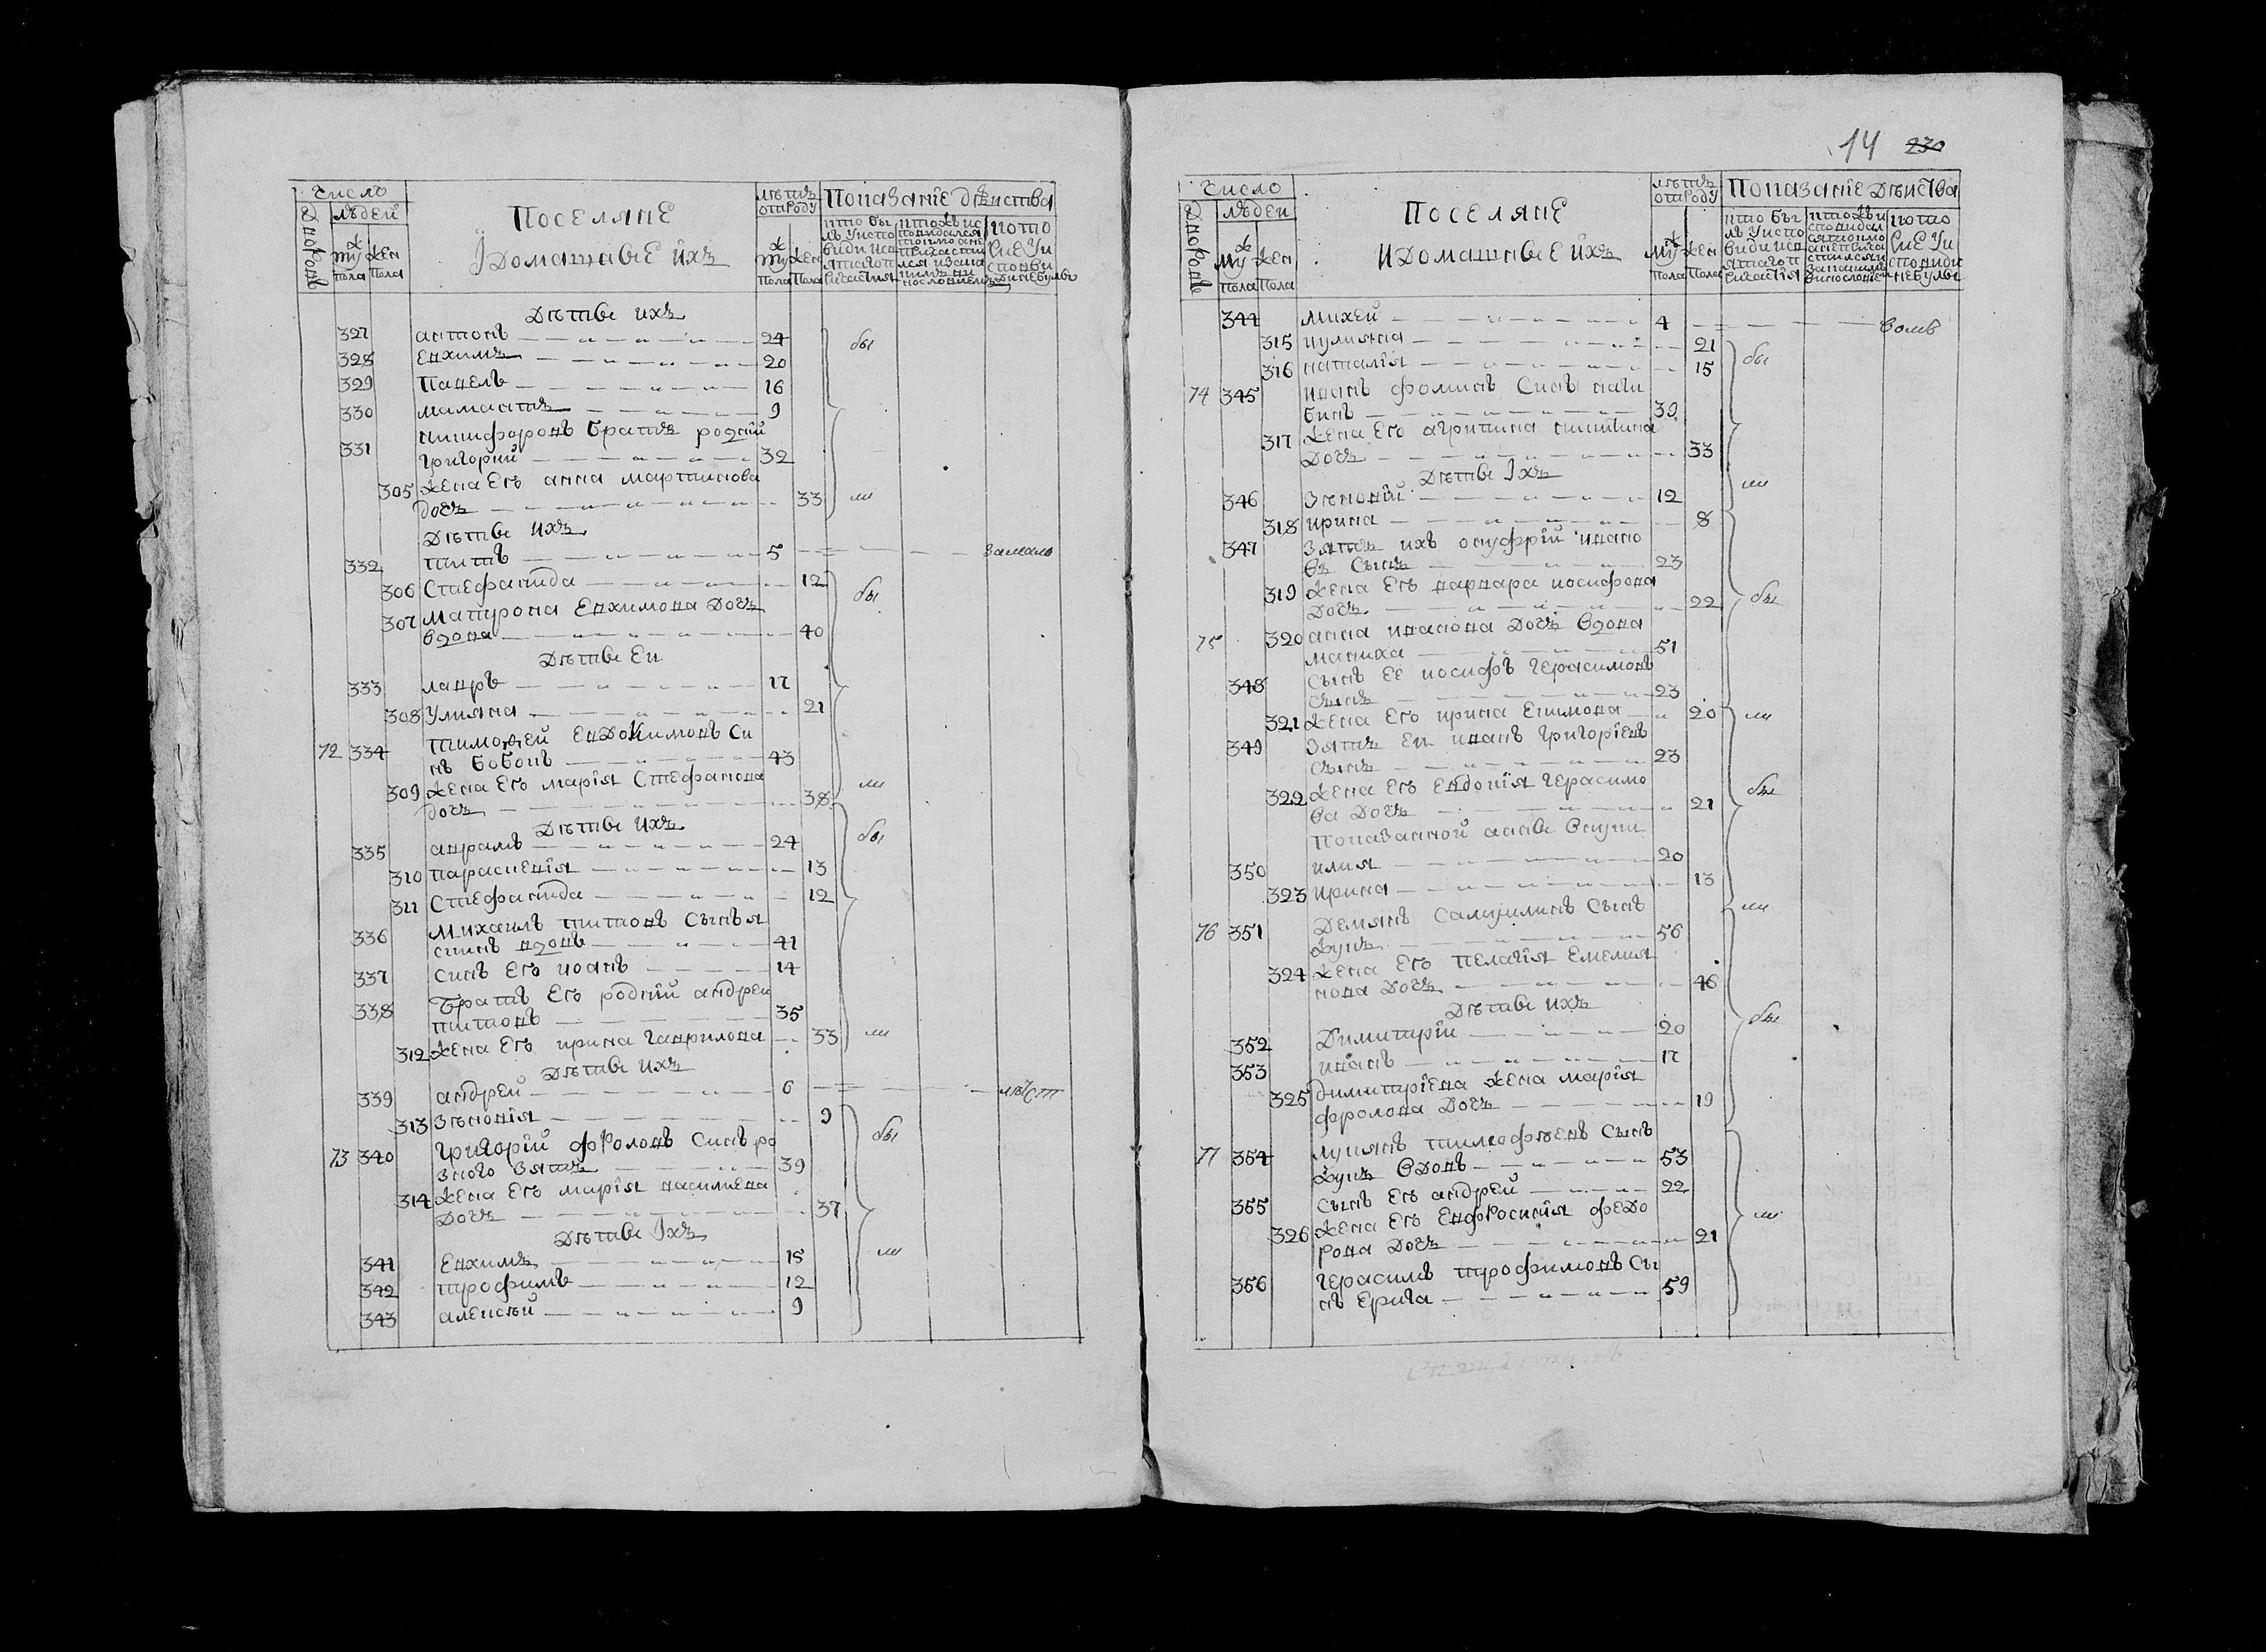 число
людей
дворовъ
муж
жен
пола
пола
Поселяне
і домашнье ихъ
лѣтъ
отроду
муж
жен
пола
пола
Показаніе действа
Дѣтье ихъ
327 антонъ 24
бы
328 Евхимъ 20
329 Павелъ 16
330 мамантъ 9
никифоровъ братъ родній
331 григорій 32
305 жена Его анна мартинова
дочъ 33
Дѣтье ихъ
332 титъ 5
замало
306 Стефанида 12
бы
307 матрона Евхимова Дочъ
вдова 40
Дѣтье Еи
333 лавръ 17
308 Улияна 21
72 334 тимофей Евдокимовъ Си
нъ бобонъ 43
309 жена Его марія Стефанова
дочъ 38
Дѣтье ихъ
335 аврамъ 24
бы
310 параскевія 13
311 Стефанида 12
336 михаилъ титовъ Сынъ я
синъ вдовъ 41
337 синъ Его иоанъ 14
338 братъ Его родній андреи
титовъ 35
312 жена Его ирина гаврилова 33
Дѣтье ихъ
339 андрей 6
313 Зѣновія 9
бы
73 340 григорій фроловъ Синъ ро
зного Зятъ 39
314 жена Его марія василиева
Дочъ 37
Дѣтье Іхъ
341 Евхимъ 15
342 трофимъ 12
343 алексѣй 9
14 230
число
людеи
дворовъ
муж
жен
пола
пола
Поселяне
и домашнье ихъ
лѣтъ
отроду
муж
жен
пола
пола
Показаніе дѣиства
344 михей 4
315 иулияна 21
бы
316 наталія 15
74 345 иванъ фоминъ Синъ
39
317 жена Его агрипина никитина
Дочъ 33
Дѣтье Іхъ
346 Зѣновій 12
318 ирина 8
347 Зятъ ихъ онуфрій ивано
въ Сынъ 23
319 жена Его варвара иосифова
Дочъ 22
бы
75 320 анна иванова Дочъ вдова
51
348 Сынъ Еѣ иосифъ герасимовъ
сынъ 23
321 жена Его ирина Екимова 20
349 Зятъ Еи иванъ григоріевъ
Сынъ 23
322 жена Его Евдокія герасимо
ва Дочъ 21
бы
показанной аннье внуки
350 илия 20
323 ирина 13
76 351 Демянъ Самуилинъ Сынъ
жукъ 56
324 жена Его пелагія Емелия
нова Дочъ 46
Дѣтье ихъ
352 Димитрій 20
бы
353 иванъ 17
325 димитріева жена марія
фролова Дочъ 19
77 354 лукянъ тимофѣевъ Сынъ
жукъ вдовъ 53
355 Сынъ Его андрей 22
326 жена Его Евфросинія федо
рова Дочъ 21
356 герасимъ трофимовъ Сы
нъ 59